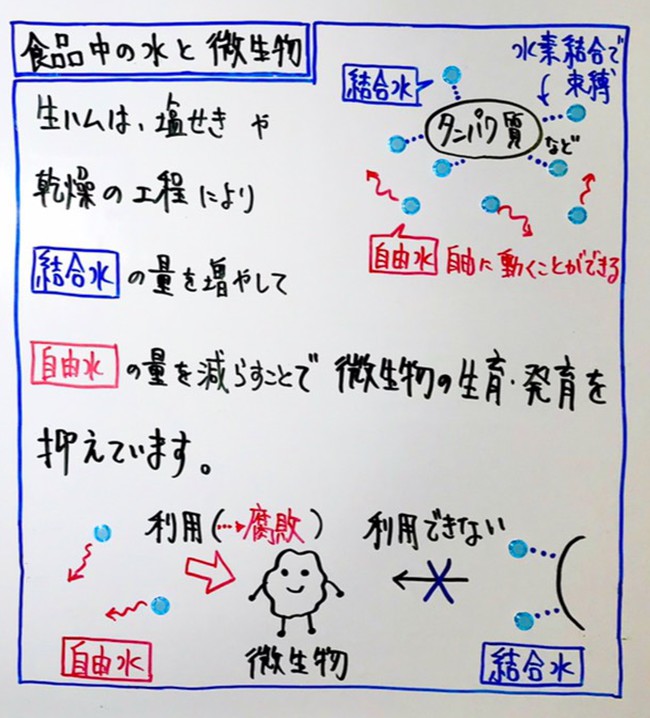 食品中の水と微生物
生ハムは、塩せきや
乾燥の工程により
結合水の量を増やして
自由水の量を減らすことで 微生物の生育・発育を
抑えています。
結合水
水素結合で
束縛
タンパク質
など
自由水 自由に動くことができる
利用(…→腐敗)
利用できない
自由水
微生物
結合水